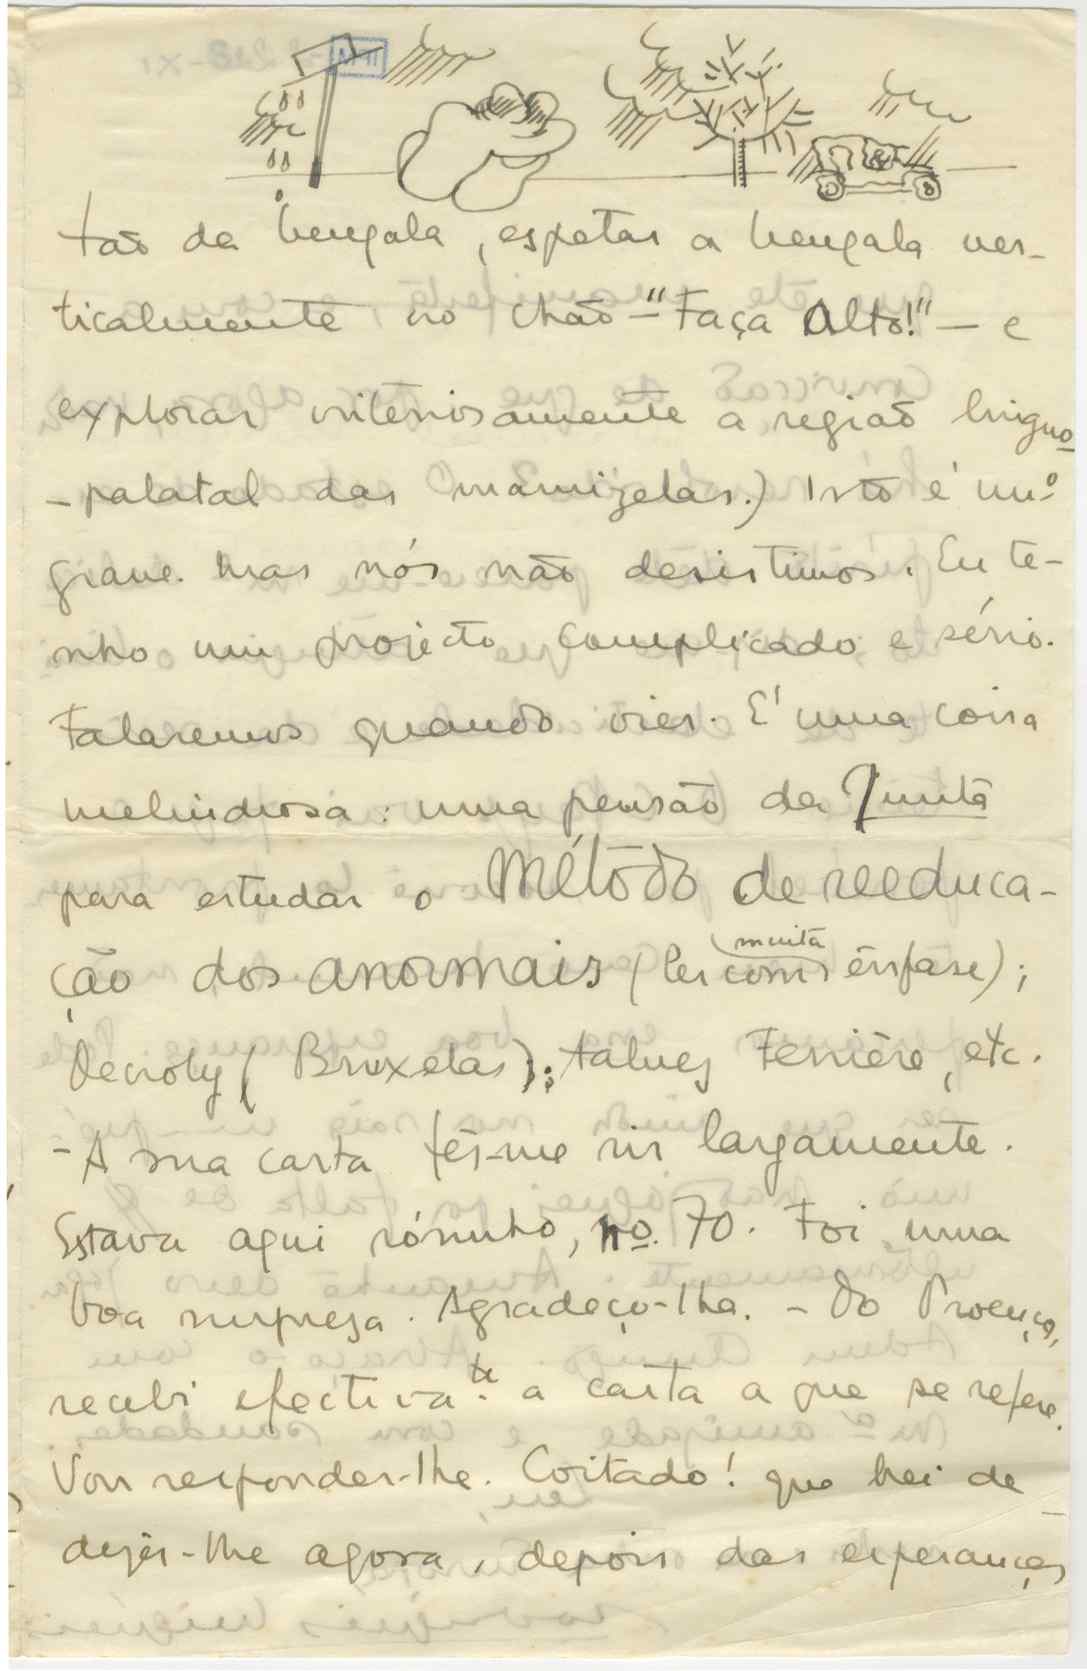 tão da bengala, espetar a bengala ver-
ticalmente no chão – "Faça Alto!" – e
explorar criteriosamente a região linguo
-palatal das mamizelas.) Isto é mº
grave. Mas nós não desistimos. Eu te-
nho um projecto complicado e sério.
Falaremos quando vier. É uma coisa
melindrosa: uma pensão da Junta
para estudar o Método de reeduca-
ção dos anormais (ler com muita ênfase);
Decroly (Bruxelas); talvez Ferrière, etc.
- A sua carta fês-me rir largamente.
Estava aqui sósinho, no. 70. Foi uma
boa surpresa. Agradeço-lha. - Do Proença,
recebi efectivate. a carta a que se refere.
Vou responder-lhe. Coitado! que hei de
dizêr-lhe agora, depois das esperanças